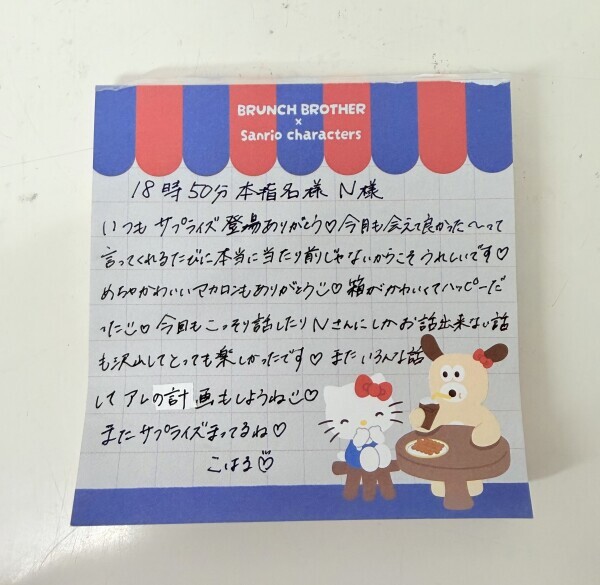 BRUNCH BROTHER
×
Sanrio characters
18時50分本指名様 N様
いつもサプライズ登場ありがとう♡今月も会えて良かった〜って
言ってくれるたびに本当に当たり前じゃないからこそうれしいです♡
めちゃかわいいマカロンもありがとう☺箱がかわいくてハッピーだ
った☺♡今回もこっそり話したりNさんにしかお話出来ない話
も沢山してとっても楽しかったです♡またいろんな話
してアレの計画もしようね☺♡
またサプライズまってるね♡
こはる♡